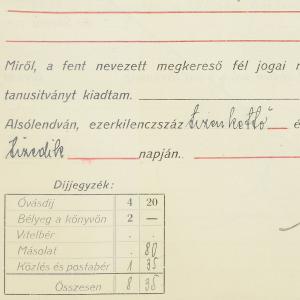 Miről, a fent nevezett megkereső fél jogai
tanusitványt kiadtam.
Alsólendván, ezerkilenczszáz tizenkettő é
tizedik napján.
Díjjegyzék:
Óvásdíj 4 20
Bélyeg a könyvön 2 —
Vitelbér . .
Másolat . 80
Közlés és postabér 1 35
Összesen 8 35